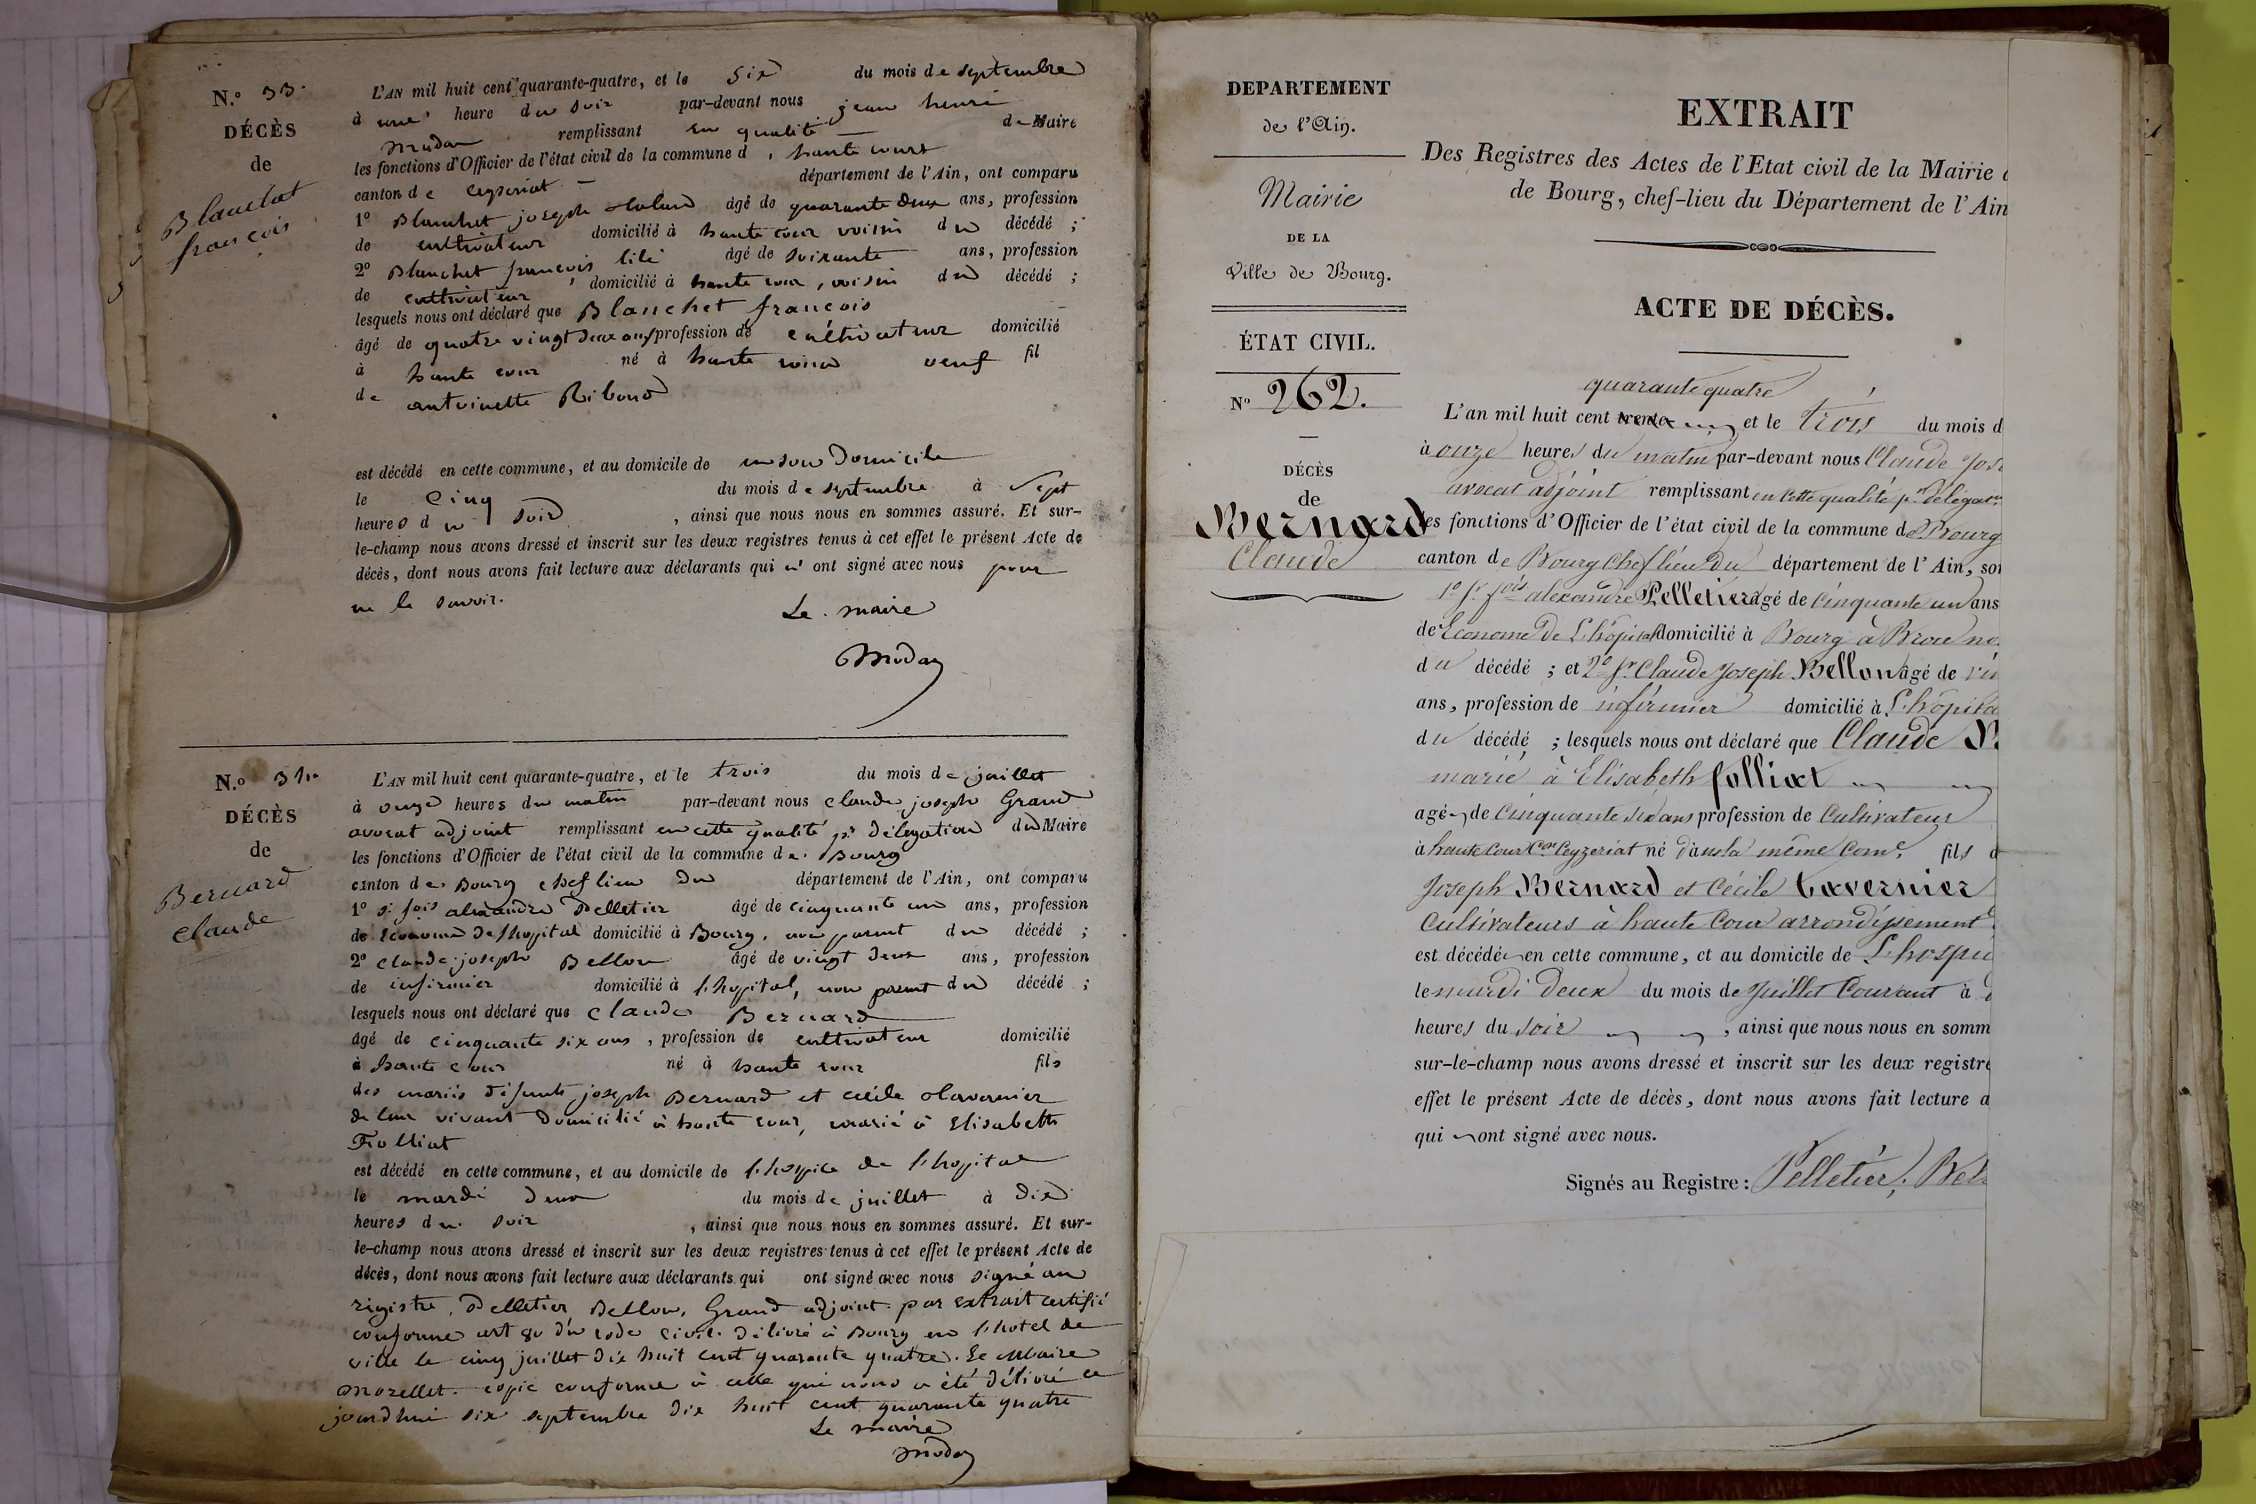 N.o 33.
DÉCÈS
de
Blanchet
françois
L'AN mil huit cent quarante-quatre, et le six du mois de septembre
à une heure du soir par-devant nous jean henri
modas remplissant en qualité de Maire
les fonctions d'Officier de l'état civil de la commune d haute cour
canton de ceyzeriat département de l'Ain, ont comparu
1o Blanchet joseph âgé de quarante deux ans, profession
de cultivateur domicilié à haute cour voisin du décédé ;
2o Blanchet françois âgé de soixante ans, profession
de cultivateur, domicilié à haute cour, voisin du décédé ;
lesquels nous ont déclaré que Blanchet françois
âgé de quatre vingt deux ans, profession de cultivateur domicilié
à haute cour né à haute cour veuf fil
de antoinette Riboud
est décédé en cette commune, et au domicile de en son Domicile
le cinq du mois de septembre à sept
heures du soir, ainsi que nous nous en sommes assuré. Et sur-
le-champ nous avons dressé et inscrit sur les deux registres tenus à cet effet le présent Acte de
décès, dont nous avons fait lecture aux déclarants qui n' ont signé avec nous pour
ne le savoir.
Le maire
N.o 34.
DÉCÈS
de
Bernard
claude
L'AN mil huit cent quarante-quatre, et le trois du mois de juillet
à onze heures du matin par-devant nous claude joseph Grand
avocat adjoint remplissant en cette qualité pr délégation du Maire
les fonctions d'Officier de l'état civil de la commune de Bourg
canton de Bourg chef lieu du département de l'Ain, ont comparu
1o sr fois alexandre Pelletier âgé de cinquante un ans, profession
de Econome de l'hopital domicilié à Bourg, non parent du décédé ;
2o claude joseph Bellon âgé de vingt deux ans, profession
de infirmier domicilié à l'hopital, non parent du décédé ;
lesquels nous ont déclaré que claude Bernard
âgé de cinquante six ans, profession de cultivateur domicilié
à haute cour né à haute cour fils
des mariés défunts joseph Bernard et cécile tavernier
de leur vivant domicilié à haute cour, marié à Elisabeth
Folliat
est décédé en cette commune, et au domicile de l'hospice de l'hopital
le mardi deux du mois de juillet à dix
heures du soir, ainsi que nous nous en sommes assuré. Et sur-
le-champ nous avons dressé et inscrit sur les deux registres tenus à cet effet le présent Acte de
décès, dont nous avons fait lecture aux déclarants qui ont signé avec nous signé au
registre, Pelletier Bellon, Grand adjoint. par extrait certifié
conforme art 80 du code civil délivré à Bourg en l'hotel de
ville le cinq juillet dix huit cent quarante quatre. Le Maire
Morellet. copie conforme à celle qui nous a été délivré ce
jourdhui six septembre dix huit cent quarante quatre
Le maire
DEPARTEMENT
de l'Ain.
Mairie
DE LA
Ville de Bourg.
ÉTAT CIVIL.
No 262.
DÉCÈS
de
Bernard
Claude
EXTRAIT
Des Registres des Actes de l'Etat civil de la Mairie
de Bourg, chef-lieu du Département de l'Ain
ACTE DE DÉCÈS.
quarante quatre
L'an mil huit cent trente et le trois du mois d
à onze heures du matin par-devant nous Claude Jos
avocat adjoint remplissant en cette qualité pr délégaon
es fonctions d'Officier de l'état civil de la commune de Bourg
canton de Bourg Chef lieu du département de l'Ain, son
1o Sr fois alexandre Pelletier agé de Cinquante un ans
de Econome de L'hôpital domicilié à Bourg à Brou no
du décédé ; et 2o Sr Claude Joseph Bellon agé de vin
ans, profession de infirmier domicilié à L'hôpita
du décédé ; lesquels nous ont déclaré que Claude B
marié à Elisabeth folliat
agé de Cinquante six ans profession de Cultivateur
à haute Cour Con Ceyzeriat né dans la même Come. fils d
Joseph Bernard et Cécile tavernier
Cultivateurs à haute Cour arrondissement
est décédé en cette commune, et au domicile de L'hospi
le mardi deux du mois de Juillet Courant à d
heures du soir, ainsi que nous nous en somm
sur-le-champ nous avons dressé et inscrit sur les deux registre
effet le présent Acte de décès, dont nous avons fait lecture a
qui ont signé avec nous.
Signés au Registre : Pelletier, Bel